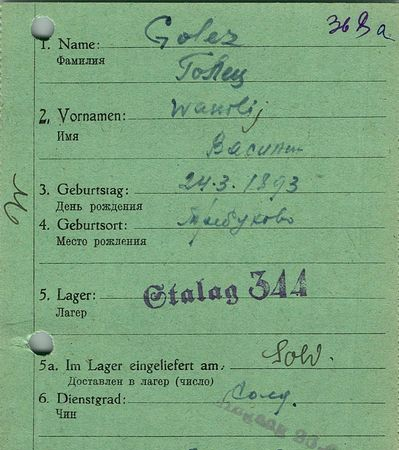 369a
1. Name: Golez
Фамилия Голец
2. Vornamen: Wassilij
Имя Василий
3. Geburtstag: 24.3.1893
День рождения
4. Geburtsort: Трибуково
Место рождения
5. Lager: Stalag 344
Лагер
5a. Im Lager eingeliefert am
Доставлен в лагер (число)
Sold.
6. Dienstgrad: Солд.
Чин